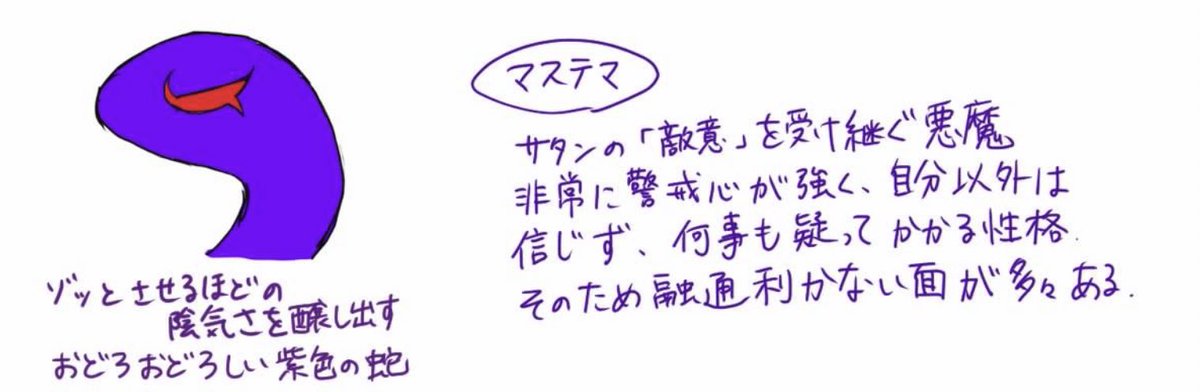 マステマ
サタンの「敵意」を受け継ぐ悪魔
非常に警戒心が強く、自分以外は
信じず、何事も疑ってかかる性格.
そのため融通利かない面が多々ある.
ゾッとさせるほどの
陰気さを醸し出す
おどろおどろしい紫色の蛇